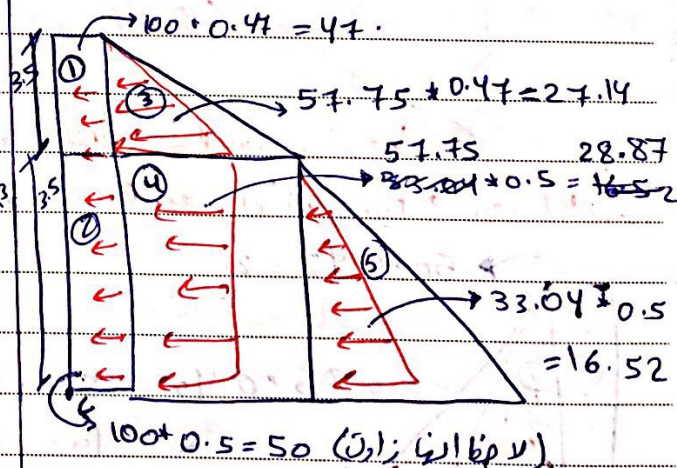 100 * 0.47 = 47.
①
3.5
③
57.75 * 0.47 = 27.14
57.75 28.87
④
* 0.5 = 16.52
3.5
3
②
⑤
33.04 * 0.5
= 16.52
100 * 0.5 = 50 (لاحظ انها زادت)